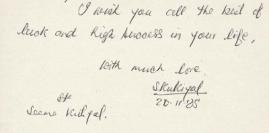 I wish you all the best of
luck and high success in your life.
With much love.
20.11.85
Seema